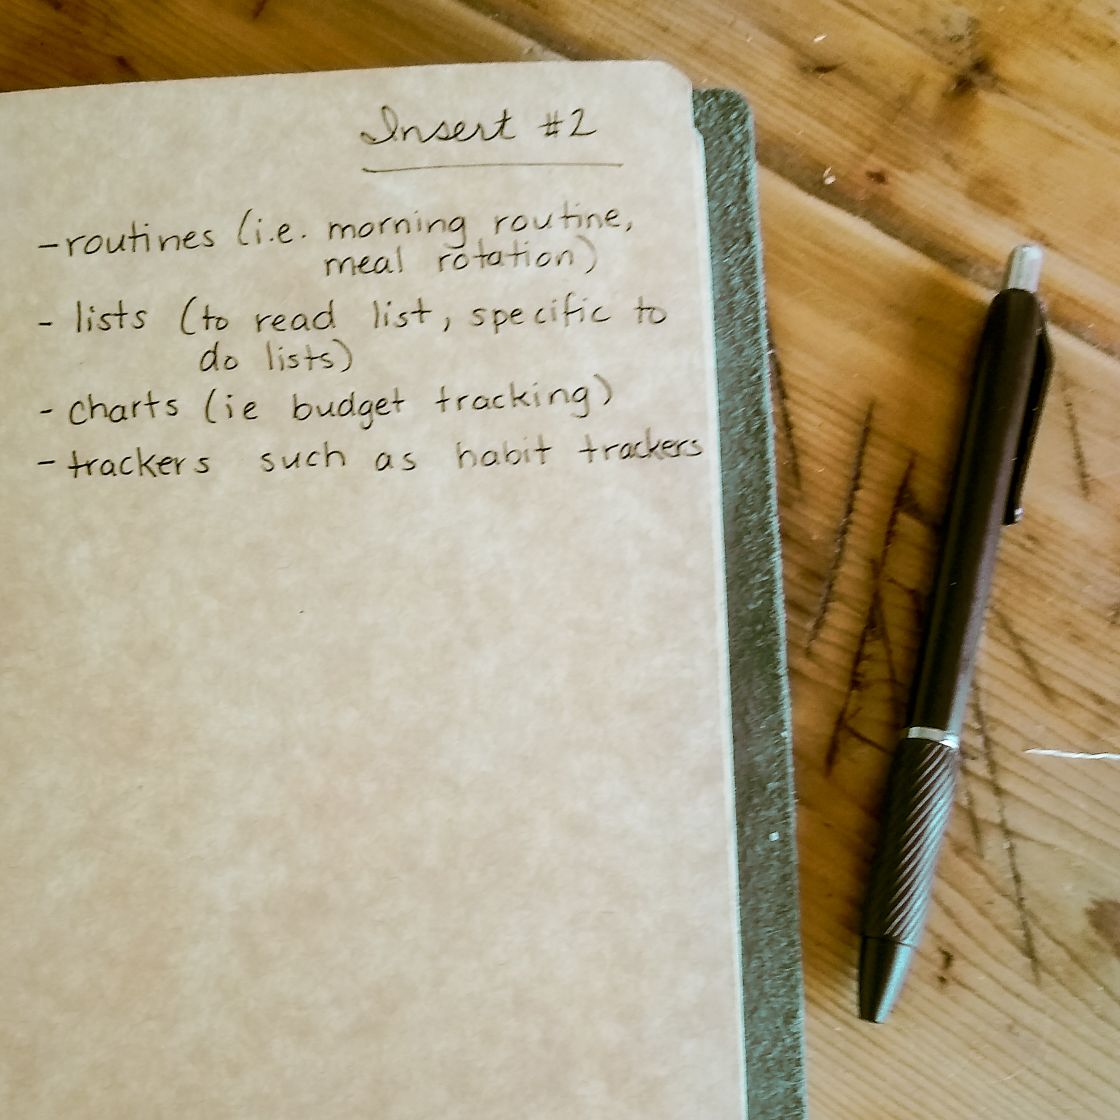 Insert #2
-routines (i.e. morning routine,
meal rotation)
- lists (to read list, specific to
do lists)
- charts (ie budget tracking)
- trackers such as habit trackers